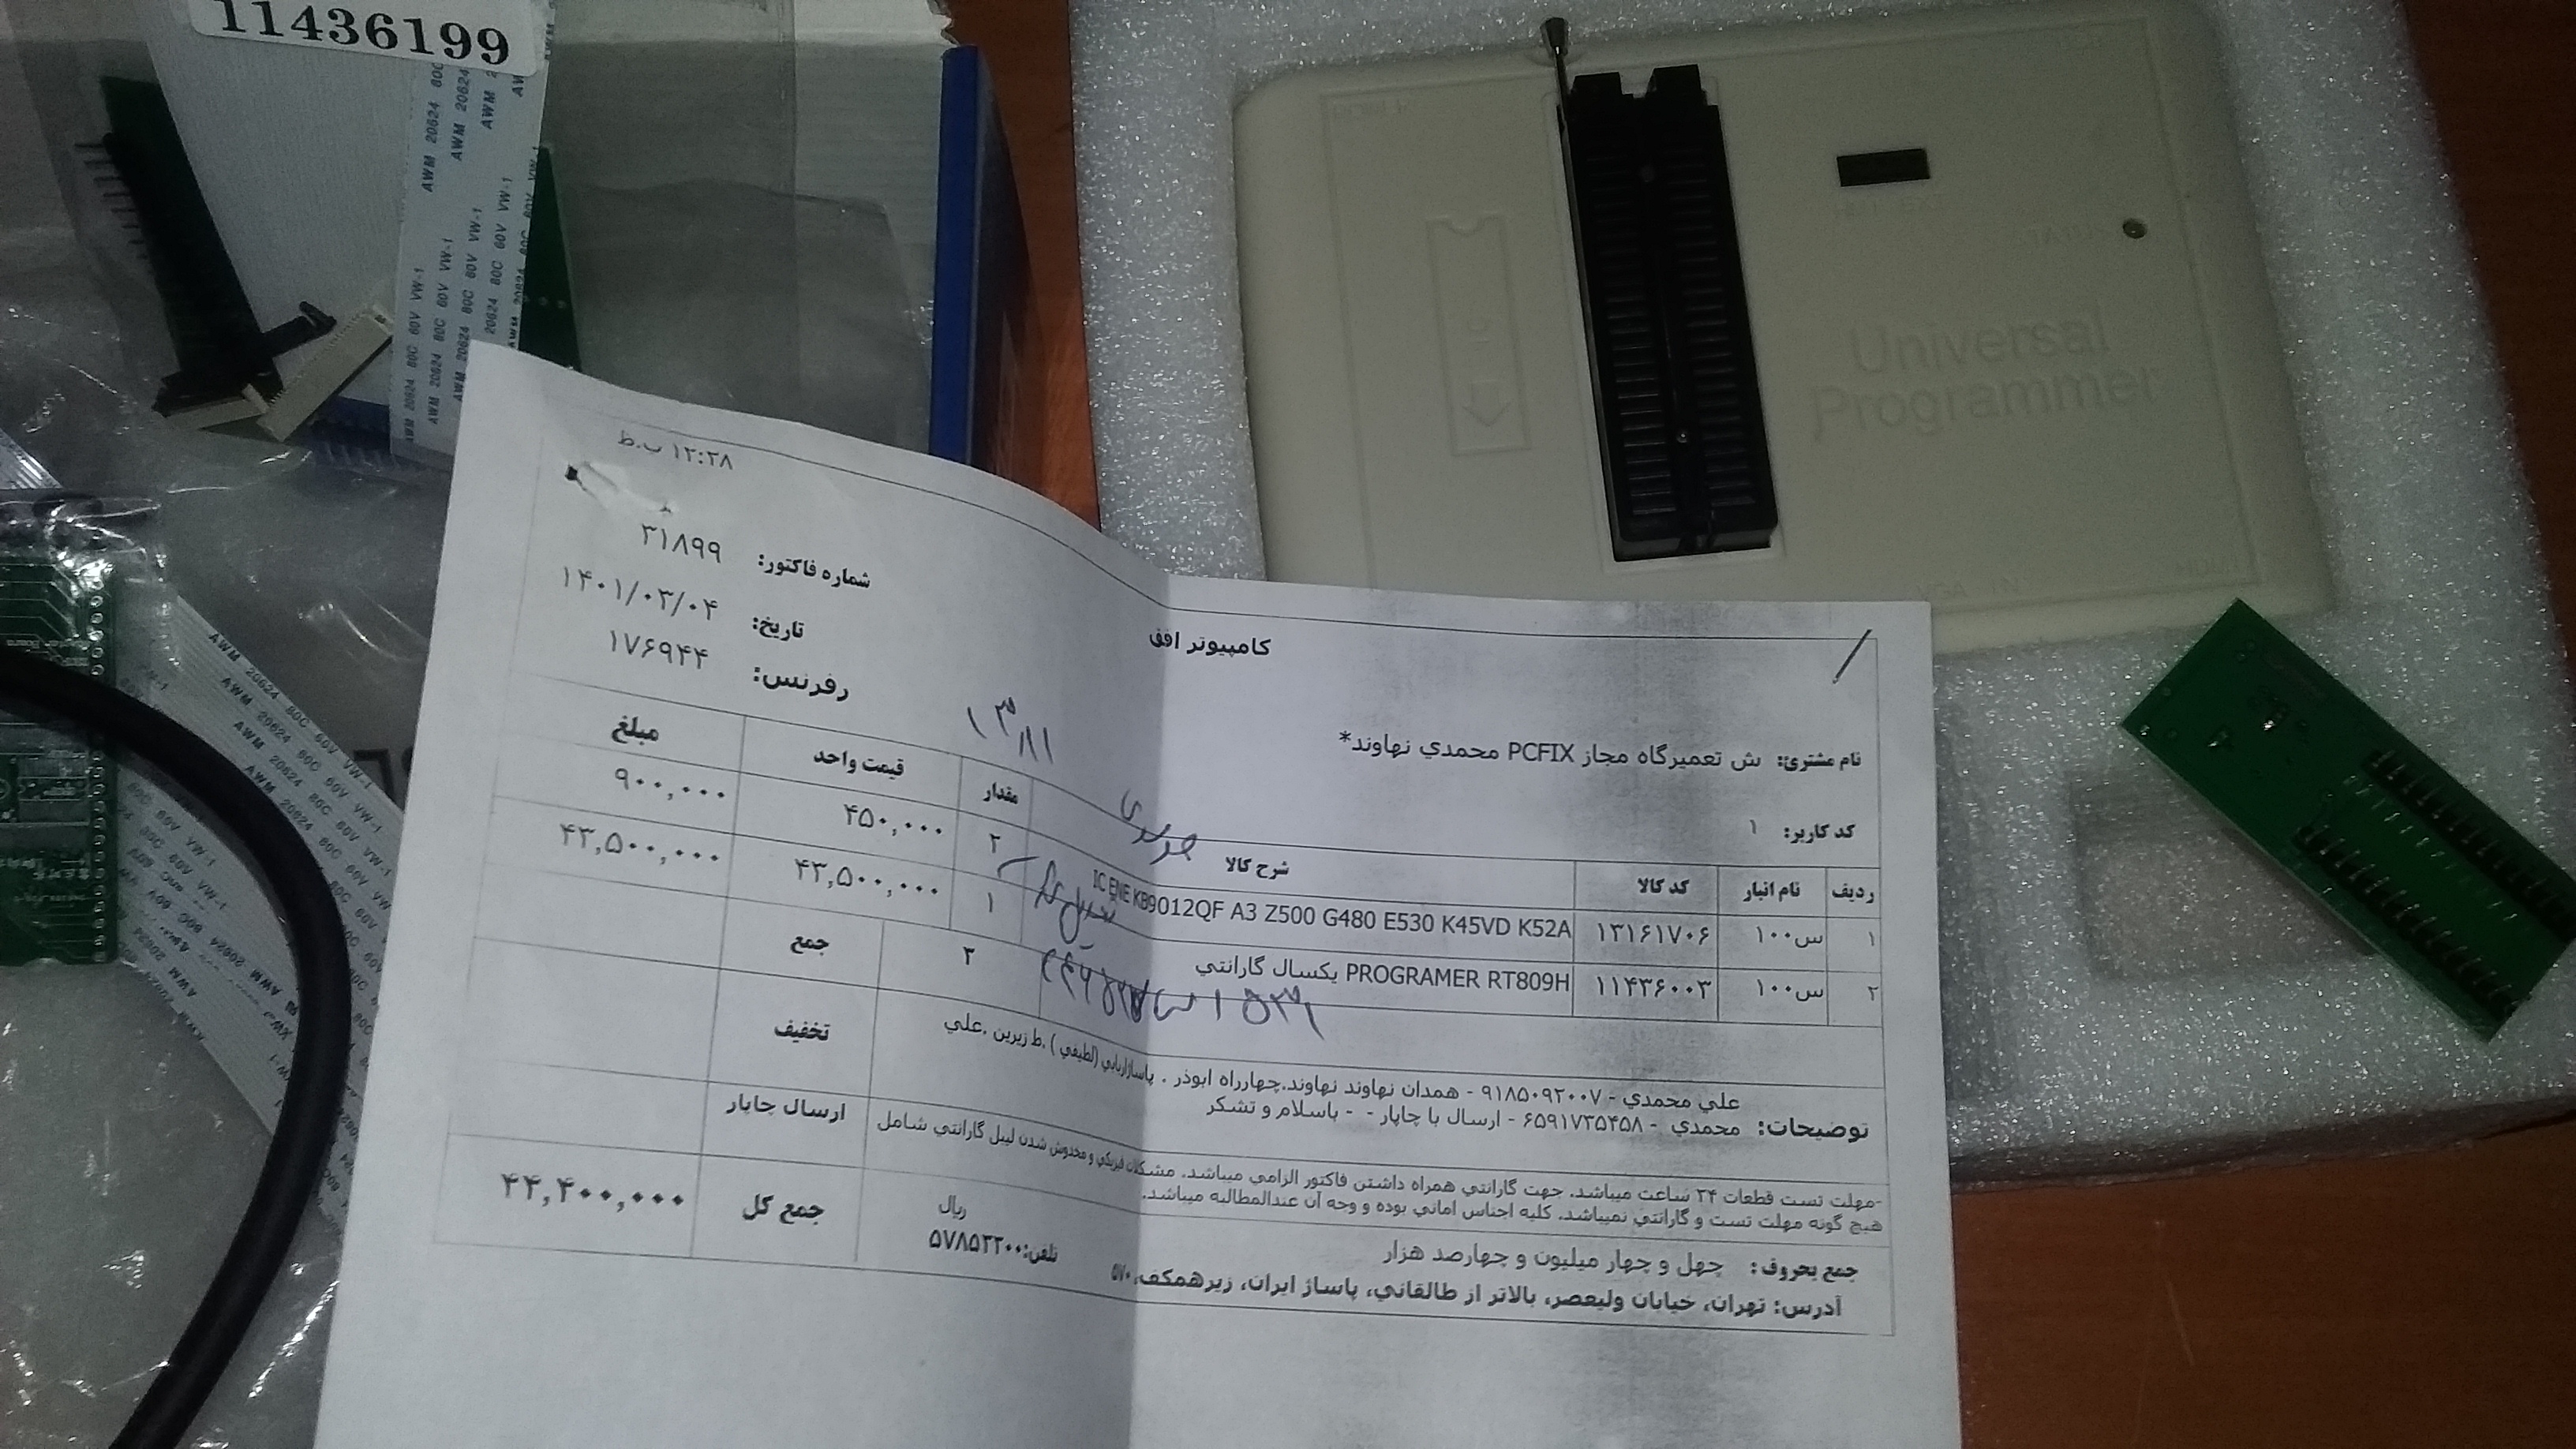 11436199
AWM 20624 80C 60V VW-1
Universal
Programmer
۱۲:۳۸ ب.ظ
شماره فاکتور: ۳۱۸۹۹
تاریخ: ۱۴۰۱/۰۳/۰۴
رفرنس: ۱۷۶۹۴۴
کامپیوتر افق
نام مشتری: ش تعمیرگاه مجاز PCFIX محمدي نهاوند*
کد کاربر: ۱
ردیف نام انبار کد کالا شرح کالا مقدار قیمت واحد مبلغ
۱ س۱۰۰ ۱۳۱۶۱۷۰۶ IC ENE KB9012QF A3 Z500 G480 E530 K45VD K52A ۲ ۴۵۰,۰۰۰ ۹۰۰,۰۰۰
۲ س۱۰۰ ۱۱۴۳۶۰۰۳ PROGRAMER RT809H یکسال گارانتي ۱ ۴۳,۵۰۰,۰۰۰ ۴۳,۵۰۰,۰۰۰
۳ جمع
توضیحات: علي محمدي - ۹۱۸۵۰۹۲۰۰۷ - همدان نهاوند نهاوند.چهارراه ابوذر . پاساژاربابي (لطیفي ) .ط زیرین .علي
محمدي - ۶۵۹۱۷۳۵۴۵۸ - ارسال با چاپار - - باسلام و تشکر
تخفیف
ارسال چاپار
-مهلت تست قطعات ۲۴ ساعت میباشد. جهت گارانتي همراه داشتن فاکتور الزامي میباشد. مشکلات فیزیکي و مخدوش شدن لیبل گارانتي شامل
هیچ گونه مهلت تست و گارانتي نمیباشد. کلیه اجناس اماني بوده و وجه آن عندالمطالبه میباشد.
جمع بحروف: چهل و چهار میلیون و چهارصد هزار ریال
جمع کل ۴۴,۴۰۰,۰۰۰
آدرس: تهران، خیابان ولیعصر، بالاتر از طالقاني، پاساژ ایران، زیرهمکف، ۵۷۰ تلفن:۵۷۸۵۳۳۰۰